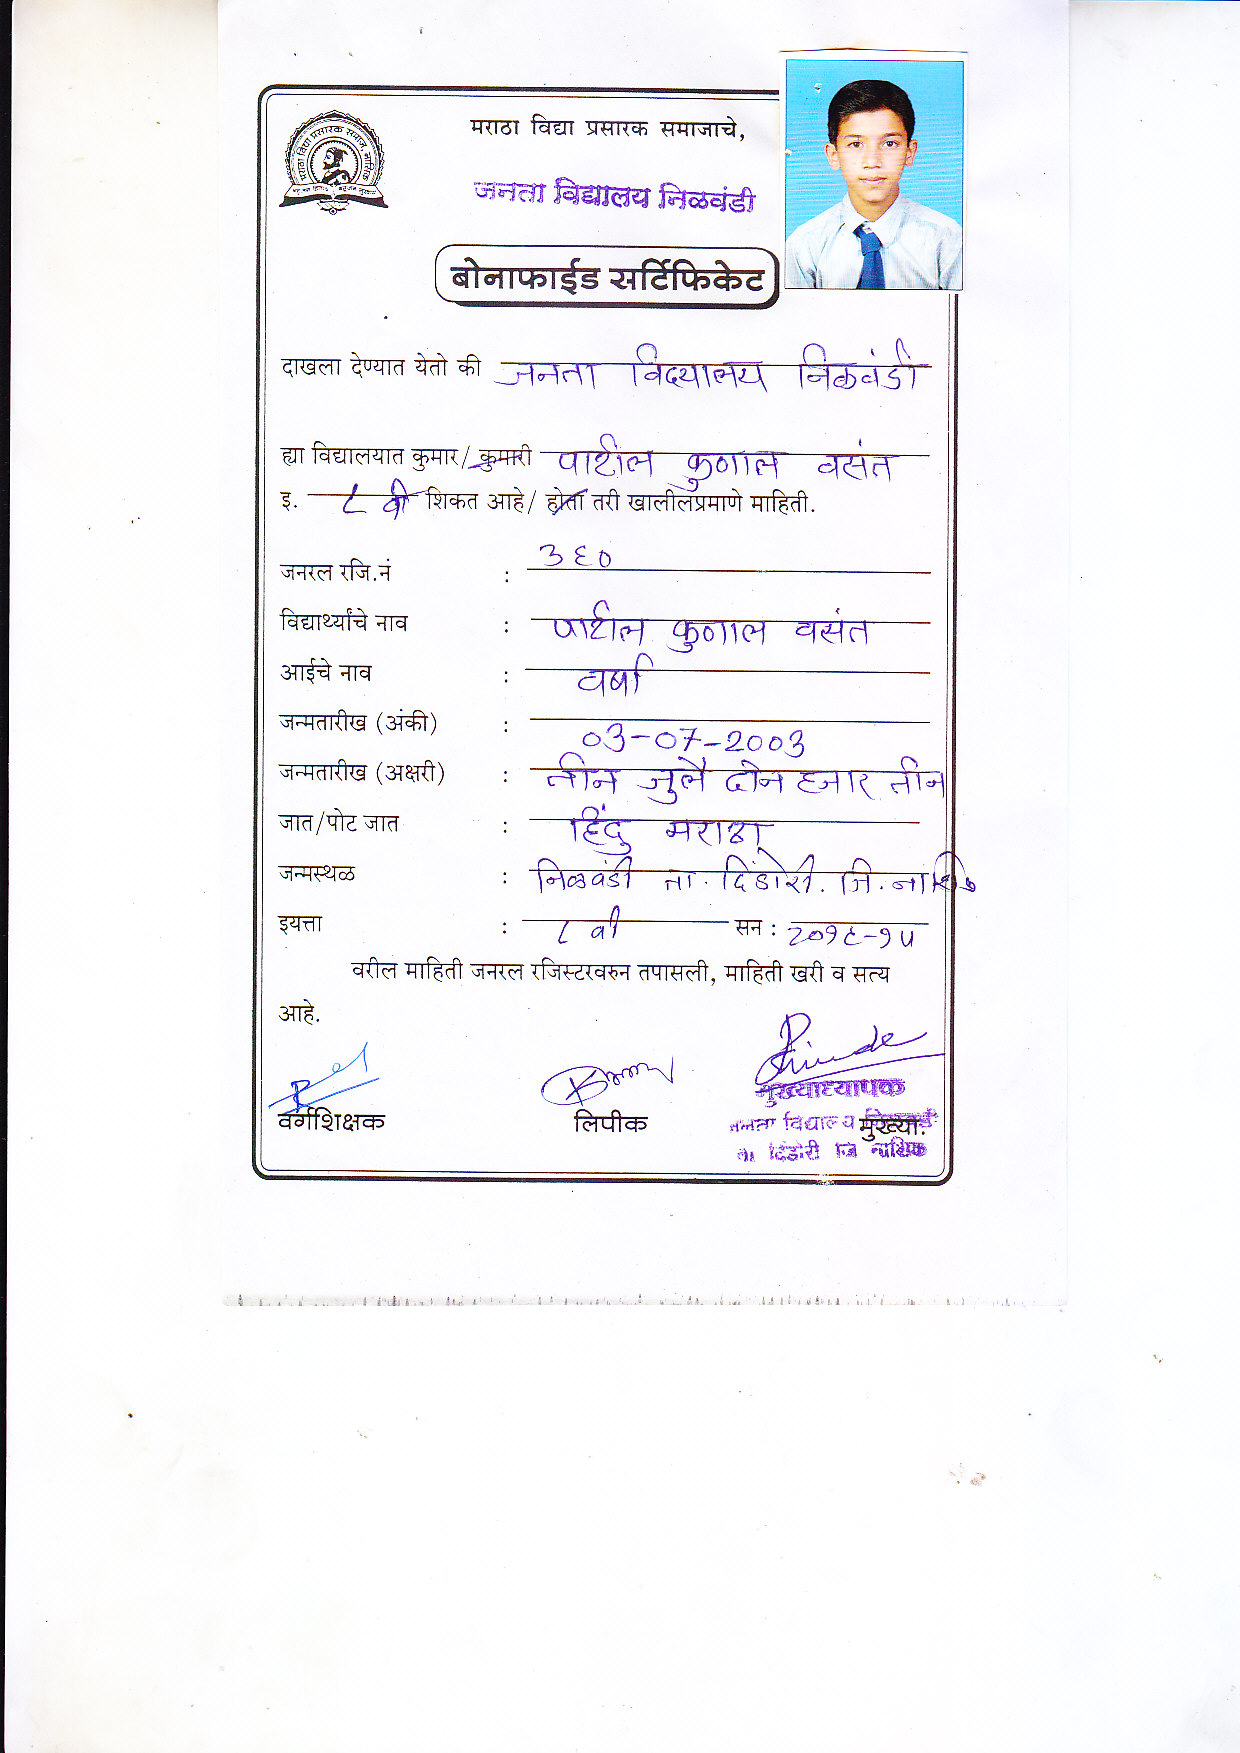 मराठा विद्या प्रसारक समाज, नाशिक
मराठा विद्या प्रसारक समाजाचे,
जनता विद्यालय निळवंडी
बोनाफाईड सर्टिफिकेट
दाखला देण्यात येतो की जनता विद्यालय निळवंडी
ह्या विद्यालयात कुमार/ कुमारी पाटील कुणाल वसंत
इ. ८ वी शिकत आहे/ होता तरी खालीलप्रमाणे माहिती.
जनरल रजि.नं : ३६०
विद्यार्थ्यांचे नाव : पाटील कुणाल वसंत
आईचे नाव : वर्षा
जन्मतारीख (अंकी) : 03-07-2003
जन्मतारीख (अक्षरी) : तीन जुलै दोन हजार तीन
जात/पोट जात : हिंदु मराठा
जन्मस्थळ : निळवंडी ता. दिंडोरी. जि. नाशिक
इयत्ता : ८ वी सन : २०१६-१७
वरील माहिती जनरल रजिस्टरवरुन तपासली, माहिती खरी व सत्य
आहे.
वर्गशिक्षक लिपीक मुख्या.
मुख्याध्यापक
जनता विद्यालय निळवंडी
ता दिंडोरी जि नाशिक